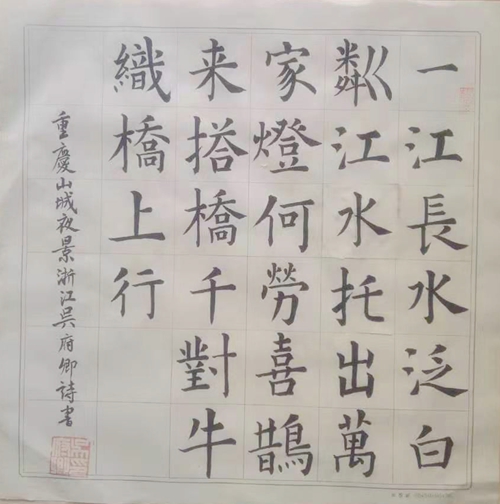 一江長水泛白
粼江水托出萬
家燈何勞喜鵲
来搭橋千對牛
織橋上行
重慶山城夜景浙江吳府卿詩書